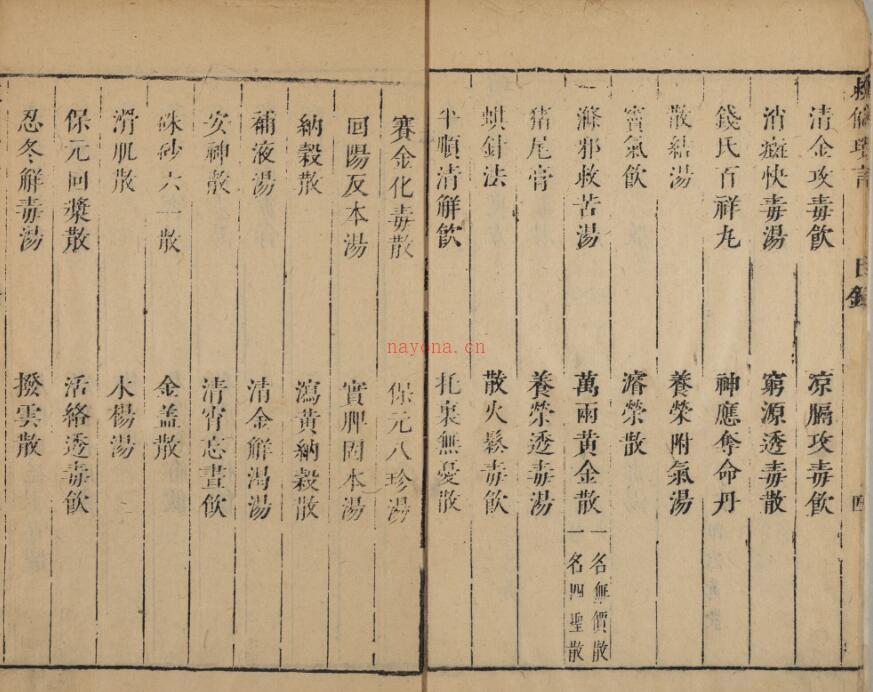 目錄
四
清金攻毒飲 凉膈攻毒飲
消癍快毒湯 窮源透毒散
錢氏百祥丸 神應奪命丹
散結湯 養榮附氣湯
實氣飲 濬榮散
滌邪救苦湯 萬兩黃金散 一名無價散 一名四聖散
猪尾膏 養榮透毒湯
蜞針法 散火鬆毒飲
半順清解飲 托裏無憂散
賽金化毒散 保元八珍湯
回陽反本湯 實脾固本湯
納穀散 瀉黃納穀散
補液湯 清金解渴湯
安神散 清宵忘晝飲
硃砂六一散 金盖散
滑肌散 水楊湯
保元回漿散 活絡透毒飲
忍冬解毒湯 撥雲散
nayona.cn